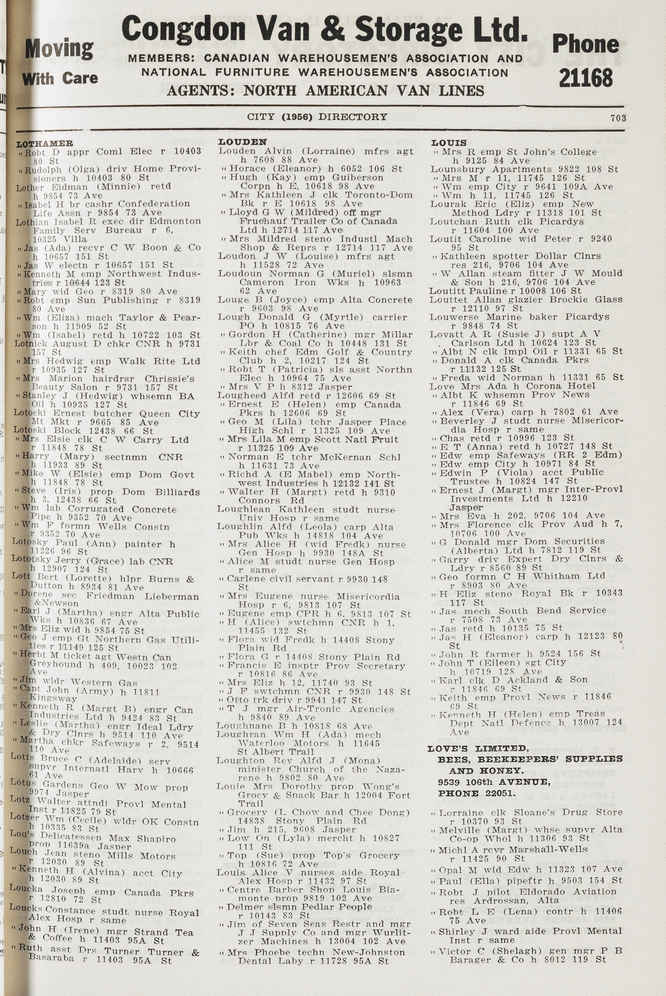 Moving
With Care
Congdon Van & Storage Ltd.
MEMBERS: CANADIAN WAREHOUSEMEN'S ASSOCIATION AND
NATIONAL FURNITURE WAREHOUSEMEN'S ASSOCIATION
AGENTS: NORTH AMERICAN VAN LINES
Phone
21168
CITY (1956) DIRECTORY
703
LOTHAMER
" Robt D appr Coml Elec r 10403
80 St
" Rudolph (Olga) driv Home Provi-
sioners h 10403 80 St
Lother Eidman (Minnie) retd
h 9854 73 Ave
" Isabel H br cashr Confederation
Life Assn r 9854 73 Ave
Lothian Isabel R exec dir Edmonton
Family Serv Bureau r 6,
10325 Villa
" Jas (Ada) recvr C W Boon & Co
h 10657 151 St
" Jas W electn r 10657 151 St
" Kenneth M emp Northwest Indus-
tries r 10644 123 St
" Mary wid Geo r 8319 80 Ave
" Robt emp Sun Publishing r 8319
80 Ave
" Wm (Eliza) mach Taylor & Pear-
son h 11909 52 St
" Wm (Isabel) retd h 10722 103 St
Lotnick August D chkr CNR h 9731
157 St
" Mrs Hedwig emp Walk Rite Ltd
r 10935 127 St
" Mrs Marion hairdrsr Chrissie's
Beauty Salon r 9731 157 St
" Stanley J (Hedwig) whsemn BA
Oil h 10935 127 St
Lotocki Ernest butcher Queen City
Mt Mkt r 9665 85 Ave
Lotoski Block 12438 66 St
" Mrs Elsie clk C W Carry Ltd
r 11848 78 St
" Harry (Mary) sectnmn CNR
h 11933 89 St
" Mike W (Elsie) emp Dom Govt
h 11848 78 St
" Steve (Iris) prop Dom Billiards
h 3, 12438 66 St
" Wm lab Corrugated Concrete
Pipe h 9352 70 Ave
" Wm F formn Wells Constn
r 9352 70 Ave
Lotosky Paul (Ann) painter h
11226 96 St
Lototsky Jerry (Grace) lab CNR
h 12907 124 St
Lott Bert (Lorette) hlpr Burns &
Dutton h 8934 81 Ave
" Dorene sec Friedman Lieberman
&Newson
" Earl J (Martha) engr Alta Public
Wks h 10836 67 Ave
" Mrs Eliz wid h 9854 75 St
" Geo J emp Gt Northern Gas Utili-
ties r 11149 125 St
" Herbt M ticket agt Westn Can
Greyhound h 409, 10023 102
Ave
" Jim wldr Western Gas
" Capt John (Army) h 11811
Kingsway
" Kenneth R (Margt B) engr Can
Industries Ltd h 9424 83 St
" Leslie (Martha) engr Ideal Ldry
& Dry Clnrs h 9514 110 Ave
" Martha chkr Safeways r 2, 9514
110 Ave
Lotts Bruce C (Adelaide) serv
supvr Internatl Harv h 10666
61 Ave
Lotus Gardens Geo W Mow prop
9974 Jasper
Lotz Walter attndt Provl Mental
Inst r 11825 79 St
Lotzer Wm (Cecile) wldr OK Constn
h 10335 83 St
Lou's Delicatessen Max Shapiro
prop 11639a Jasper
Louch Jean steno Mills Motors
r 12030 89 St
" Kenneth H (Alvina) acct City
h 12030 89 St
Loucka Joseph emp Canada Pkrs
r 12810 72 St
Loucks Constance studt nurse Royal
Alex Hosp r same
" John H (Irene) mgr Strand Tea
& Coffee h 11403 95A St
" Ruth asst Drs Turner Turner &
Basaraba r 11403 95A St
LOUDEN
Louden Alvin (Lorraine) mfrs agt
h 7608 88 Ave
" Horace (Eleanor) h 6052 106 St
" Hugh (Kay) emp Guiberson
Corpn h E, 10618 98 Ave
" Mrs Kathleen J clk Toronto-Dom
Bk r E 10618 98 Ave
" Lloyd G W (Mildred) off mgr
Fruehauf Trailer Co of Canada
Ltd h 12714 117 Ave
" Mrs Mildred steno Industl Mach
Shop & Reprs r 12714 117 Ave
Loudon J W (Louise) mfrs agt
h 11528 72 Ave
Loudoun Norman G (Muriel) slsmn
Cameron Iron Wks h 10963
62 Ave
Louge B (Joyce) emp Alta Concrete
r 9603 98 Ave
Lough Donald G (Myrtle) carrier
PO h 10815 76 Ave
" Gordon H (Catherine) mgr Millar
Lbr & Coal Co h 10448 131 St
" Keith chef Edm Golf & Country
Club h 2, 10217 124 St
" Robt T (Patricia) sls asst Northn
Elec h 10964 75 Ave
" Mrs V P h 8312 Jasper
Lougheed Alfd retd r 12606 69 St
" Ernest E (Helen) emp Canada
Pkrs h 12606 69 St
" Geo M (Lila) tchr Jasper Place
High Schl r 11325 109 Ave
" Mrs Lila M emp Scott Natl Fruit
r 11325 109 Ave
" Norman E tchr McKernan Schl
h 11631 73 Ave
" Richd A (E Mabel) emp North-
west Industries h 12132 141 St
" Walter H (Margt) retd h 9310
Connors Rd
Loughlean Kathleen studt nurse
Univ Hosp r same
Loughlin Alfd (Leola) carp Alta
Pub Wks h 14818 104 Ave
" Mrs Alice H (wid Fredk) nurse
Gen Hosp h 9930 148A St
" Alice M studt nurse Gen Hosp
r same
" Carlene civil servant r 9930 148
St
" Mrs Eugene nurse Misericordia
Hosp r 6, 9813 107 St
" Eugene emp CPR h 6, 9813 107 St
" H (Alice) swtchmn CNR h 1,
11455 132 St
" Flora wid Fredk h 14408 Stony
Plain Rd
" Flora G r 14408 Stony Plain Rd
" Francis E insptr Prov Secretary
r 10816 86 Ave
" Mrs Eliz h 12, 11740 93 St
" J F swtchmn CNR r 9930 148 St
" Otto trk driv r 9941 147 St
" T J mgr Air-Tronic Agencies
h 9840 89 Ave
Loughnane B h 10818 68 Ave
Loughran Wm H (Ada) mech
Waterloo Motors h 11645
St Albert Trail
Loughton Rey Alfd J (Mona)
minister Church of the Naza-
rene h 9802 80 Ave
Louie Mrs Dorothy prop Wong's
Grocy & Snack Bar h 12004 Fort
Trail
" Grocery (L Chow and Chee Dong)
14838 Stony Plain Rd
" Jim h 215, 9608 Jasper
" Low On (Lyla) mercht h 10827
111 St
" Top (Sue) prop Top's Grocery
h 10816 72 Ave
Louis Alice V nurses aide Royal
Alex Hosp r 11432 97 St
" Centre Barber Shop Louis Bia-
monte prop 9819 102 Ave
" Delmer slsmn Pedlar People
r 10143 83 St
" Jim of Seven Seas Restr and mgr
J J Supply Co and mgr Wurlit-
zer Machines h 13004 102 Ave
" Mrs Phoebe techn New-Johnston
Dental Laby r 11728 95A St
LOUIS
" Mrs R emp St John's College
h 9125 84 Ave
Lounsbury Apartments 9822 108 St
" Mrs M r 11, 11745 126 St
" Wm emp City r 9641 109A Ave
" Wm h 11, 11745 126 St
Lourak Eric (Eliz) emp New
Method Ldry r 11318 101 St
Loutchan Ruth clk Picardys
r 11604 100 Ave
Loutit Caroline wid Peter r 9240
95 St
" Kathleen spotter Dollar Clnrs
res 216, 9706 104 Ave
" W Allan steam fitter J W Mould
& Son h 216, 9706 104 Ave
Loutitt Pauline h 10008 106 St
Louttet Allan glazier Brockie Glass
r 12110 97 St
Louwerse Marine baker Picardys
r 9848 74 St
Lovatt A R (Susie J) supt A V
Carlson Ltd h 10624 123 St
" Albt N clk Impl Oil r 11331 65 St
" Donald A clk Canada Pkrs
r 11132 125 St
" Freda wid Norman h 11331 65 St
Love Mrs Ada h Corona Hotel
" Albt K whsemn Prov News
r 11846 69 St
" Alex (Vera) carp h 7802 61 Ave
" Beverley J studt nurse Misericor-
dia Hosp r same
" Chas retd r 10996 123 St
" E T (Anna) retd h 10727 148 St
" Edw emp Safeways (RR 2 Edm)
" Edw emp City h 10971 84 St
" Edwin P (Viola) acct Public
Trustee h 10824 147 St
" Ernest J (Margt) mgr Inter-Provl
Investments Ltd h 12210
Jasper
" Mrs Eva h 202, 9706 104 Ave
" Mrs Florence clk Prov Aud h 7,
10706 100 Ave
" G Donald mgr Dom Securities
(Alberta) Ltd h 7812 119 St
" Garry driv Expert Dry Clnrs &
Ldry r 8560 89 St
" Geo formn C H Whitham Ltd
r 8903 80 Ave
" H Eliz steno Royal Bk r 10343
117 St
" Jas mech South Bend Service
r 7508 73 Ave
" Jas retd h 10135 75 St
" Jas H (Eleanor) carp h 12123 80
St
" John R farmer h 9524 156 St
" John T (Eileen) sgt City
h 10719 128 Ave
" Karl clk D Ackland & Son
r 11846 69 St
" Keith emp Provl News r 11846
69 St
" Kenneth H (Helen) emp Treas
Dept Natl Defence h 13007 124
Ave
LOVE'S LIMITED,
BEES, BEEKEEPERS' SUPPLIES
AND HONEY.
9539 106th AVENUE,
PHONE 22051.
" Lorraine clk Sloane's Drug Store
r 10370 93 St
" Melville (Margt) whse supvr Alta
Co-op Whol h 11306 93 St
" Michl A rcvr Marshall-Wells
r 11425 90 St
" Opal M wid Edw h 11323 107 Ave
" Paul (Ella) pipeftr h 9503 154 St
" Robt J pilot Eldorado Aviation
res Ardrossan, Alta
" Robt L E (Lena) contr h 11406
75 Ave
" Shirley J ward aide Provl Mental
Inst r same
" Victor C (Shelagh) gen mgr P B
Barager & Co h 8012 119 St